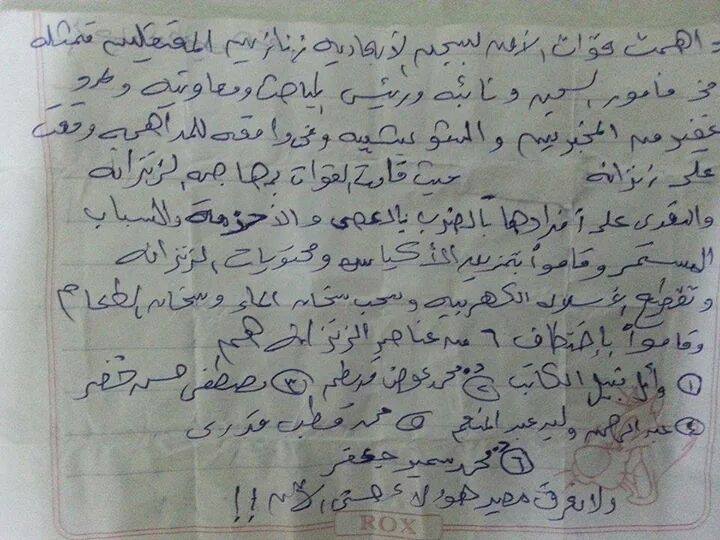 = داهمت قوات الأمن لسجن الأبعادية زنازين المعتقلين متمثله
في مأمور السجن ونائبه ورئيس المباحث ومعاونيه و
غفير من المخبرين والشو يشيه وفي وافقه للمداهمه وقفت
على زنزانه حيث قامت القوات بمهاجمه الزنزانه
والتعدى على أفرادها بالضرب بالعصى والأحزمة والسباب
المستمر وقاموا بتمزيق الأكياس ومحتويات الزنزانه
وتقطيع الأسلاك الكهربيه وسحب سخان الماء وسخان الطعام
وقاموا بإختطاف ٦ من عناصر الزنزانه هم
① وائل نبيل الكاتب ② محمد عوض ③ مصطفى حسن خضر
④ عبد الرحمن وليد عبد المنعم ⑤ محمد قطب قدرى
⑥ محمد سمير جعفر
ولا نعرف مصير هؤلاء حتى الآن !!
ROX